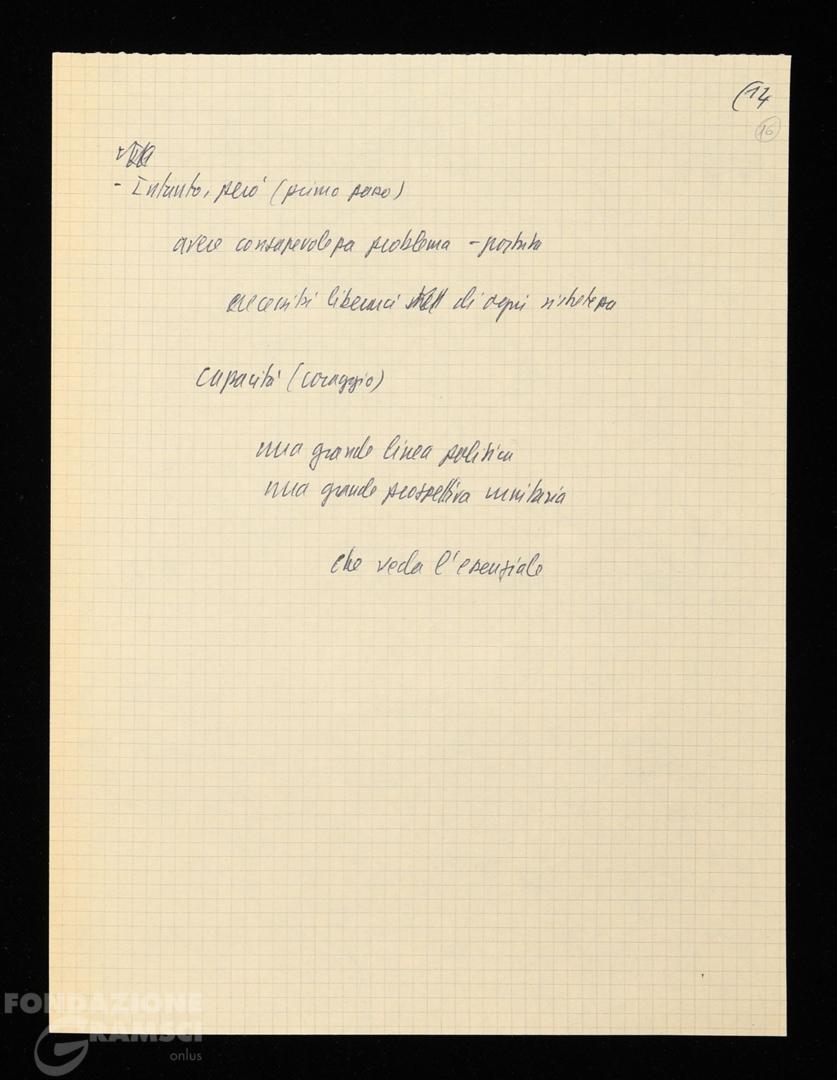 (14
16
- Intanto, però (primo passo)
avere consapevolezza problema - portata
necessità liberarci di ogni ristrettezza
capacità (coraggio)
una grande linea politica
una grande prospettiva unitaria
che veda l'essenziale
FONDAZIONE
GRAMSCI
onlus